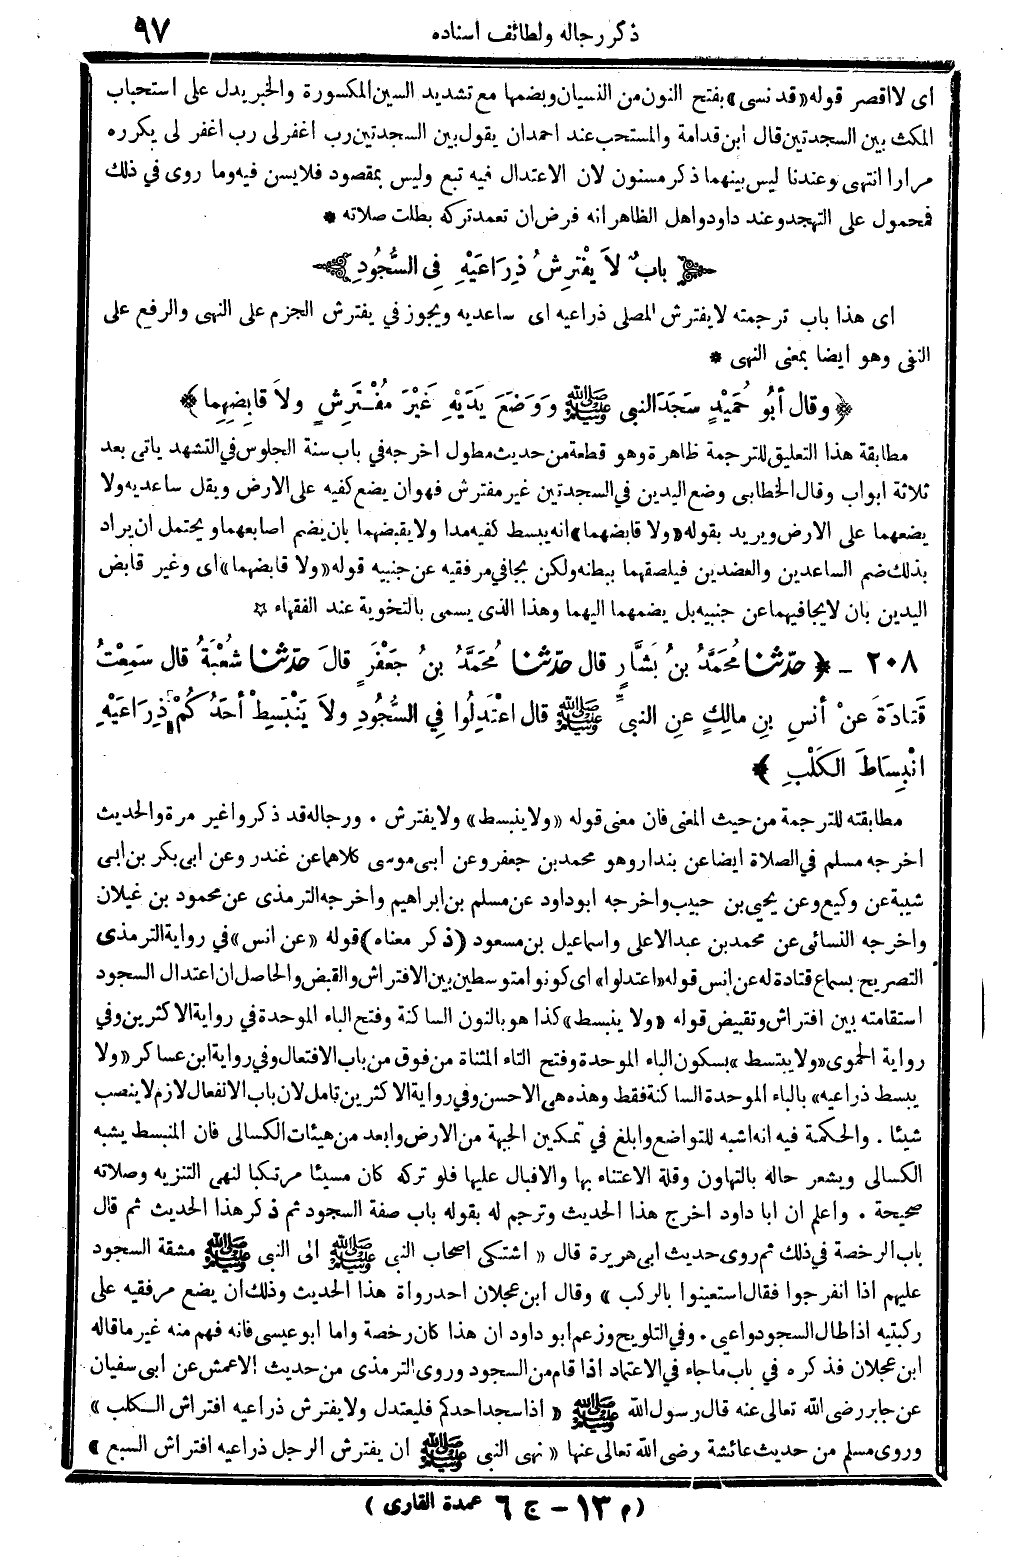 ذكر رجاله ولطائف اسناده ٩٧
اى لا اقصر قوله «قد نسى» بفتح النون من النسيان وبضمها مع تشديد السين المكسورة والخبر يدل على استحباب
المكث بين السجدتين قال ابن قدامة والمستحب عند احمد ان يقول بين السجدتين رب اغفر لى رب اغفر لى يكرره
مرارا انتهى وعندنا ليس بينهما ذكر مسنون لان الاعتدال فيه تبع وليس بمقصود فلا يسن فيه وما روى في ذلك
فمحمول على التهجد وعند داود واهل الظاهر انه فرض ان تعمد تركه بطلت صلاته *
﴿ بابٌ لاَ يَفْتَرِشُ ذِرَاعَيْهِ فِي السُّجُودِ ﴾
اى هذا باب ترجمته لا يفترش المصلى ذراعيه اى ساعديه ويجوز في يفترش الجزم على النهى والرفع على
النفى وهو ايضا بمعنى النهى *
﴿ وقال أبُو حُمَيْدٍ سَجَدَ النبى ﷺ وَوَضَعَ يَدَيْهِ غَيْرَ مُفْتَرِشٍ ولاَ قابِضِهِما ﴾
مطابقة هذا التعليق للترجمة ظاهرة وهو قطعة من حديث مطول اخرجه في باب سنة الجلوس في التشهد ياتى بعد
ثلاثة ابواب وقال الخطابى وضع اليدين في السجدتين غير مفترش فهو ان يضع كفيه على الارض ويقل ساعديه ولا
يضعهما على الارض ويريد بقوله «ولا قابضهما» انه يبسط كفيه مدا ولا يقبضهما بان يضم اصابعهما ويحتمل ان يراد
بذلك ضم الساعدين والعضدين فيلصقهما ببطنه ولكن يجافي مرفقيه عن جنبيه قوله «ولا قابضهما» اى وغير قابض
اليدين بان لا يجافيهما عن جنبيه بل يضمهما اليهما وهذا الذى يسمى بالتخوية عند الفقهاء ☆
٢٠٨ - ﴿ حدّثنا مُحَمَّدُ بنُ بَشَّارٍ قال حدّثنا مُحَمَّدُ بنُ جَعْفَرٍ قالَ حدّثنا شُعْبَةُ قال سَمِعْتُ
قَتادَةَ عَنْ أنَسِ بنِ مالِكٍ عنِ النبىِّ ﷺ قال اعْتَدِلُوا فِي السُّجُودِ ولاَ يَنْبَسِطْ أحَدُ كُمْ ذِرَاعَيْهِ
انْبِسَاطَ الكَلْبِ ﴾
مطابقته للترجمة من حيث المعنى فان معنى قوله «ولا ينبسط» ولا يفترش . ورجاله قد ذكروا غير مرة والحديث
اخرجه مسلم في الصلاة ايضا عن بندار وهو محمد بن جعفر وعن ابى موسى كلاهما عن غندر وعن ابى بكر بن ابى
شيبة عن وكيع وعن يحيى بن حبيب واخرجه ابو داود عن مسلم بن ابراهيم واخرجه الترمذى عن محمود بن غيلان
واخرجه النسائى عن محمد بن عبد الاعلى واسماعيل بن مسعود (ذكر معناه) قوله «عن انس» في رواية الترمذى
التصريح بسماع قتادة له عن انس قوله «اعتدلوا» اى كونوا متوسطين بين الافتراش والقبض والحاصل ان اعتدال السجود
استقامته بين افتراش وتقبيض قوله «ولا ينبسط» كذا هو بالنون الساكنة وفتح الباء الموحدة في رواية الاكثرين وفي
رواية الحموى «ولا يبتسط» بسكون الباء الموحدة وفتح التاء المثناة من فوق من باب الافتعال وفي رواية ابن عساكر «ولا
يبسط ذراعيه» بالباء الموحدة الساكنة فقط وهذه هى الاحسن وفي رواية الاكثرين تامل لان باب الانفعال لازم لا ينصب
شيئا . والحكمة فيه انه اشبه للتواضع وابلغ في تمكين الجبهة من الارض وابعد من هيئات الكسالى فان المنبسط يشبه
الكسالى ويشعر حاله بالتهاون وقلة الاعتناء بها والاقبال عليها فلو تركه كان مسيئا مرتكبا لنهى التنزيه وصلاته
صحيحة . واعلم ان ابا داود اخرج هذا الحديث وترجم له بقوله باب صفة السجود ثم ذكر هذا الحديث ثم قال
باب الرخصة في ذلك ثم روى حديث ابى هريرة قال « اشتكى اصحاب النبى ﷺ الى النبى ﷺ مشقة السجود
عليهم اذا انفرجوا فقال استعينوا بالركب » وقال ابن عجلان احد رواة هذا الحديث وذلك ان يضع مرفقيه على
ركبتيه اذا طال السجود واعيى . وفي التلويح وزعم ابو داود ان هذا كان رخصة واما ابو عيسى فانه فهم منه غير ما قاله
ابن عجلان فذكره في باب ما جاء في الاعتماد اذا قام من السجود وروى الترمذى من حديث الاعمش عن ابى سفيان
عن جابر رضى الله تعالى عنه قال رسول الله ﷺ « اذا سجد احدكم فليعتدل ولا يفترش ذراعيه افتراش الكلب »
وروى مسلم من حديث عائشة رضى الله تعالى عنها « نهى النبى ﷺ ان يفترش الرجل ذراعيه افتراش السبع »
(م ١٣ - ج ٦ عمدة القارى)